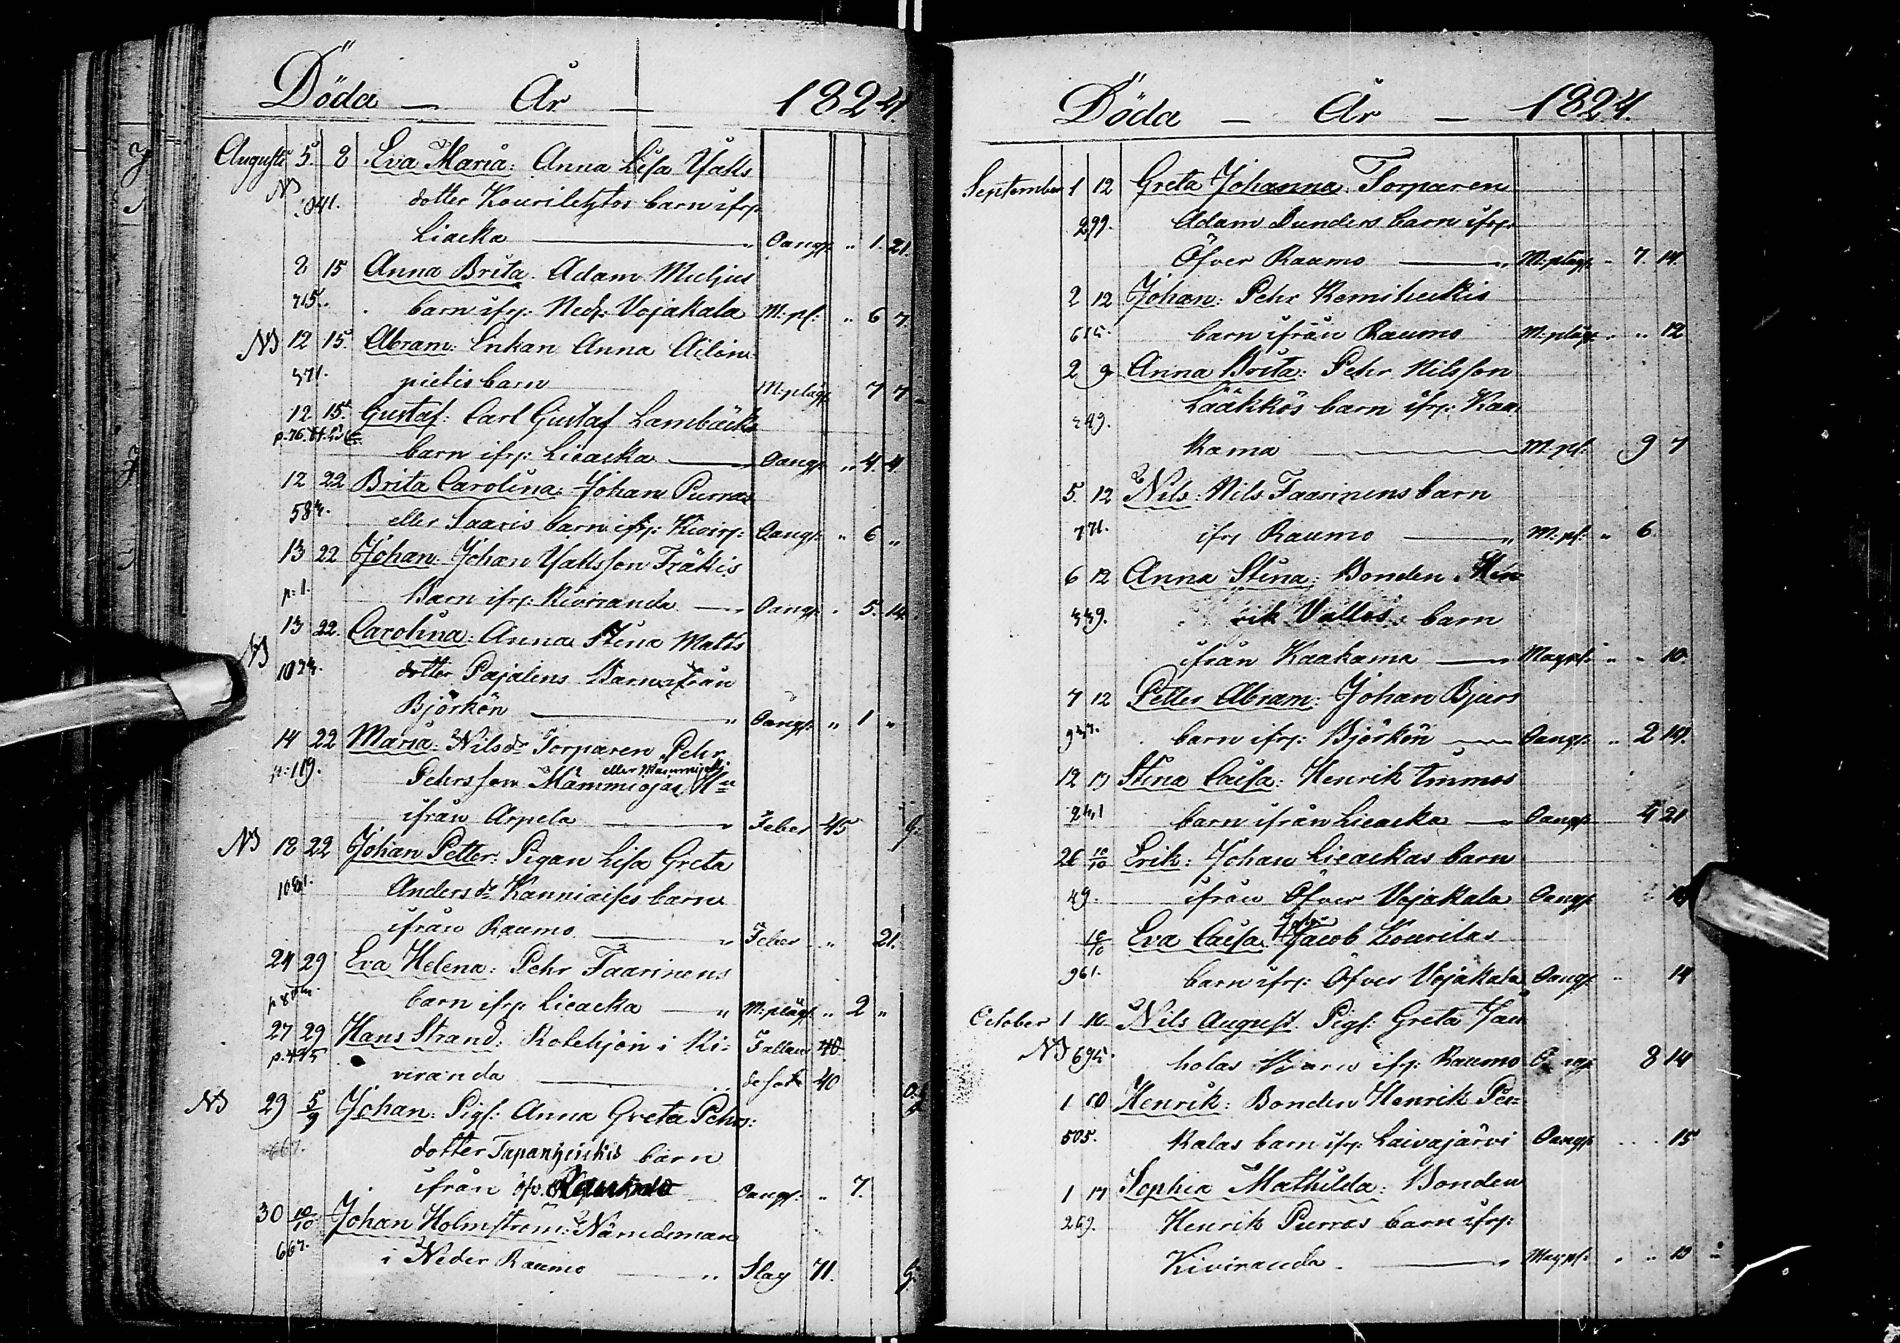 Döda — År — 1824
Augusti 5. 8 Eva Maria: Anna Lisa Matts
NB 1041. dotter Kourilehtos barn ifrp:
Liacka — " Oangf: " 1. 21.
2 15 Anna Brita. Adam Muljus
715. barn ifrp: Ned: Vojakala M:pl: " 6 7.
NB 12 15. Abram: Enkan Anna Ailom
371. pietis barn M:plåg: 7 7
12 15. Gustaf: Carl Gustaf Lambäcks
p. 76. barn ifrp: Licacka — " Oangf: " 4. 4.
12 22 Brita Carolina: Johan Purras
584. eller Taaris barn ifrp: Kivirp: Oangf: " 6 "
13 22 Johan: Johan Mattsson Fräkis
p: 1. Barn ifrp: Kiviranda — Oangf: " 5. 14.
13 22. Carolina: Anna Stina Matts
NB 1024. dotter Pajalens Barn ifrån
Björkön — " Oangf: " 1 "
14 22 Maria: Nilsdr Torparen Pehr
p: 119. Pehrsson Mämmiojas eller H:u
ifrån Arpela — " Feber 45 g:
NB 18 22 Johan Petter: Pigan Lisa Greta
1081. Andersdr Kanniaises barn
ifrån Raumo — " Feber " 21.
24 29 Eva Helena: Pehr Taarinens
barn ifrp: Licacka — " M:plåg: " 2 "
27 29 Hans Strand: Rotehjon i Ki-
p. 475 viranda — Fallande sot 40
NB 29 5/9 Johan: Pigf: Anna Greta Pehrs:
667. dotter Tapanheikis barn
ifrån öfv. Oangf: " 7.
30 10/10 Johan Holmström: Nämndeman
667. i Neder Raumo — " Slag 71. g:
Döda — År — 1824.
September 1 12 Greta Johanna: Torparen
299. Adam Dunders barn ifrp:
Öfver Raumo — " M:plåg: " 7. 14.
2 12 Johan: Pehr Kemiheikis
615. barn ifrån Raumo M:plåg: " " 12
2 9 Anna Brita: Pehr Nilsson
349. Lääkkös barn ifrp: Kaa
kama — M:pl: 9 7
5 12 Nils: Nils Taarinens barn
771. ifrp Raumo — " M:pl: " 6.
6 12 Anna Stina: Bonden Hen
339. rik Vallos barn
ifrån Kaakama — Magpl: " " 10.
7 12 Petter Abram: Johan Bjurs
937. barn ifrp: Björkön — Oangf: " 2 14.
12 19 Stina Caisa: Henrik Emmes
241 barn ifrån Licacka — Oangf: 4 21
26 10/10 Erik: Johan Licackas barn
49. ifrån Öfver Vojakala Oangf:
10/10 Eva Caisa: Jacob Kourilas
961. barn ifrp: Öfver Vojakala Oangf: 14
October 1 10 Nils August. Pigf: Greta Jau
NB 695. holas Barn ifrp: Raumo Oangf: 8 14
1 10 Henrik: Bonden Henrik Per-
505. kalas barn ifrp: Laivajärvi Oangf: 15
1 17 Sophia Mathilda: Bonden
269. Henrik Purras barn ifrp:
Kiviranda. — " Magpl: " " 12